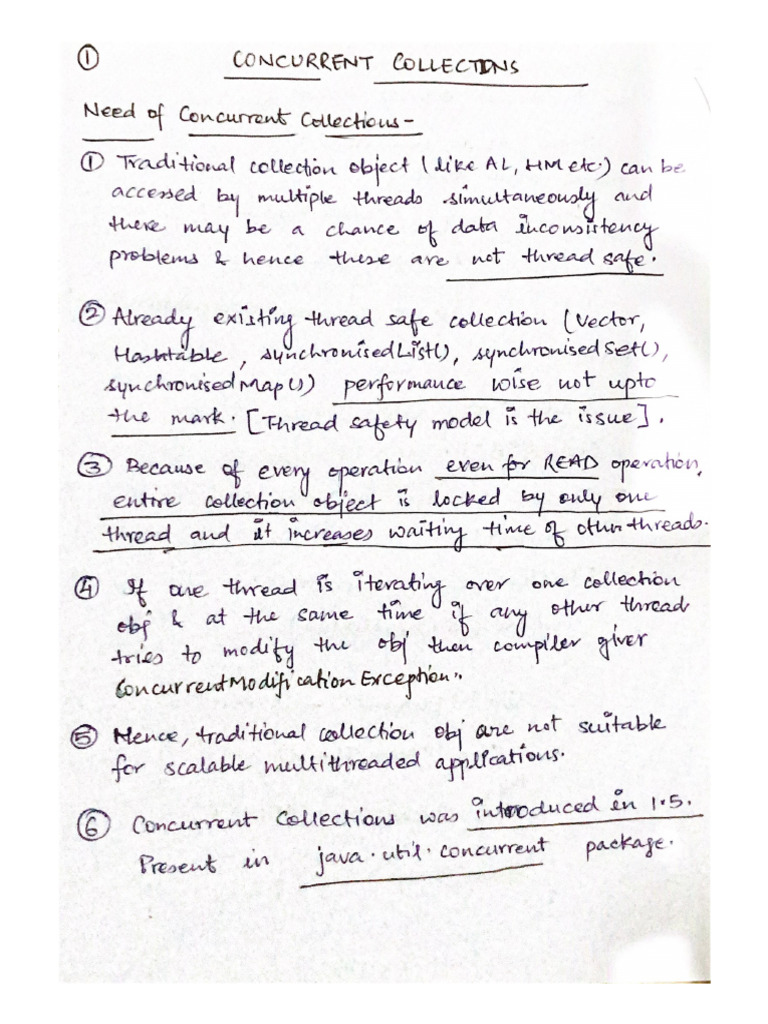 ① CONCURRENT COLLECTIONS
Need of Concurrent Collections -
① Traditional collection object (like AL, HM etc.) can be
accessed by multiple threads simultaneously and
there may be a chance of data inconsistency
problems & hence these are not thread safe.
② Already existing thread safe collection (Vector,
Hashtable, synchronisedList(), synchronisedSet(),
synchronisedMap()) performance wise not upto
the mark. [Thread safety model is the issue].
③ Because of every operation even for READ operation,
entire collection object is locked by only one
thread and it increases waiting time of other threads.
④ If one thread is iterating over one collection
obj & at the same time if any other thread
tries to modify the obj then compiler giver
ConcurrentModification Exception.
⑤ Hence, traditional collection obj are not suitable
for scalable multithreaded applications.
⑥ Concurrent Collections was introduced in 1.5.
Present in java.util.concurrent package.